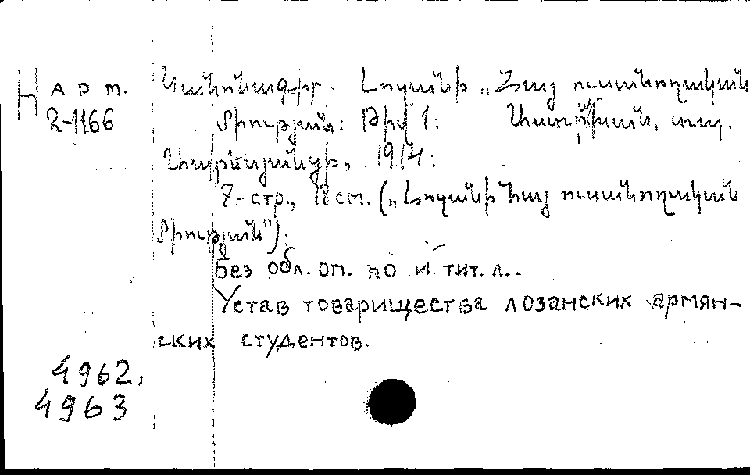 Н арт.
2-1166
Կանոնագիր. Լոզանի „Հայ ուսանողական
Միության: Թիվ 1: տպ.
1914:
7-стр., см. („Լոզանի Հայ ուսանողական
Միության").
Без обл. оп. по тит. л..
Устав товарищества лозанских армян-
ских студентов.
4962,
4963